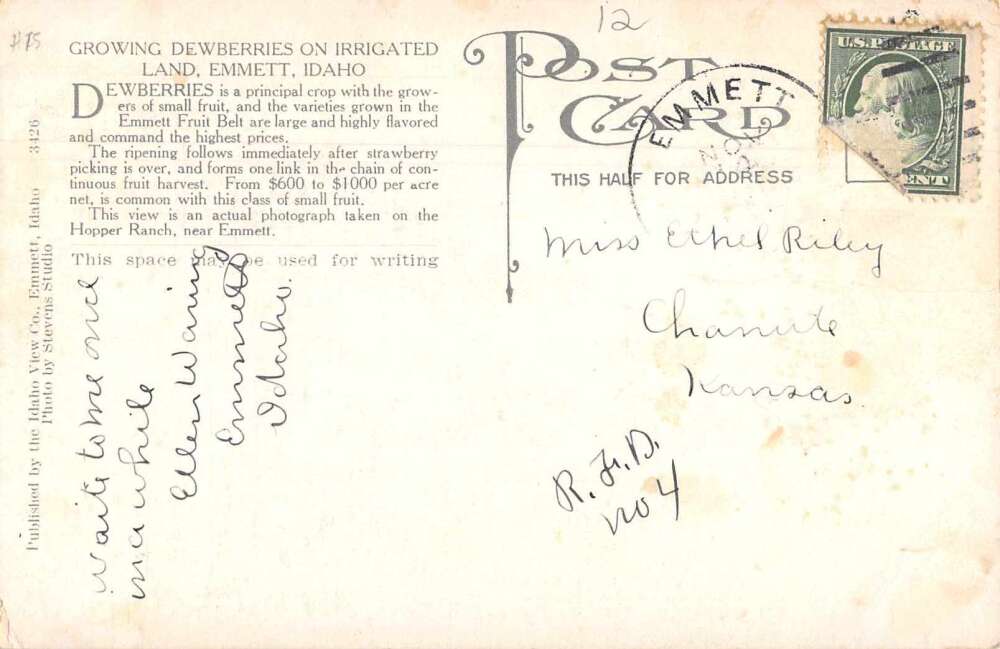 #75
12
GROWING DEWBERRIES ON IRRIGATED
LAND, EMMETT, IDAHO
DEWBERRIES is a principal crop with the grow-
ers of small fruit, and the varieties grown in the
Emmett Fruit Belt are large and highly flavored
and command the highest prices.
The ripening follows immediately after strawberry
picking is over, and forms one link in the chain of con-
tinuous fruit harvest. From $600 to $1000 per acre
net, is common with this class of small fruit.
This view is an actual photograph taken on the
Hopper Ranch, near Emmett.
This space may be used for writing
Published by the Idaho View Co., Emmett, Idaho 3426
Photo by Stevens Studio
waite to me once
in a while
Ellen Waring
Emmett
Idaho.
POST
CARD
THIS HALF FOR ADDRESS
EMMETT
NOV
U.S. POSTAGE
CENT 1
Miss Ethel Riley
Chanute
Kansas
R.F.D.
no 4